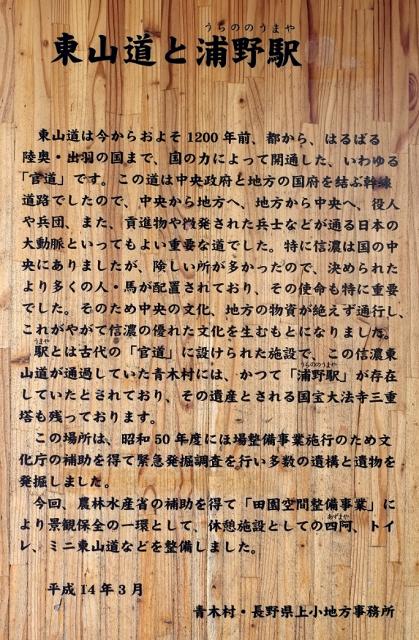 うらののうまや
東山道と浦野駅
東山道は今からおよそ1200年前、都から、はるばる
陸奥・出羽の国まで、国の力によって開通した、いわゆる
「官道」です。この道は中央政府と地方の国府を結ぶ幹線
道路でしたので、中央から地方へ、地方から中央へ、役人
や兵団、また、貢進物や徴発された兵士などが通る日本の
大動脈といってもよい重要な道でした。特に信濃は国の中
央にありましたが、険しい所が多かったので、決められた
より多くの人・馬が配置されており、その使命も特に重要
でした。そのため中央の文化、地方の物資が絶えず通行し、
これがやがて信濃の優れた文化を生むもとになりました。
うまや
駅とは古代の「官道」に設けられた施設で、この信濃東
うらののうまや
山道が通過していた青木村には、かつて「浦野駅」が存在
していたとされており、その遺産とされる国宝大法寺三重
塔も残っております。
この場所は、昭和50年度にほ場整備事業施行のため文
化庁の補助を得て緊急発掘調査を行い多数の遺構と遺物を
発掘しました。
今回、農林水産省の補助を得て「田園空間整備事業」に
あずまや
より景観保全の一環として、休憩施設としての四阿、トイ
レ、ミニ東山道などを整備しました。
平成14年3月
青木村・長野県上小地方事務所